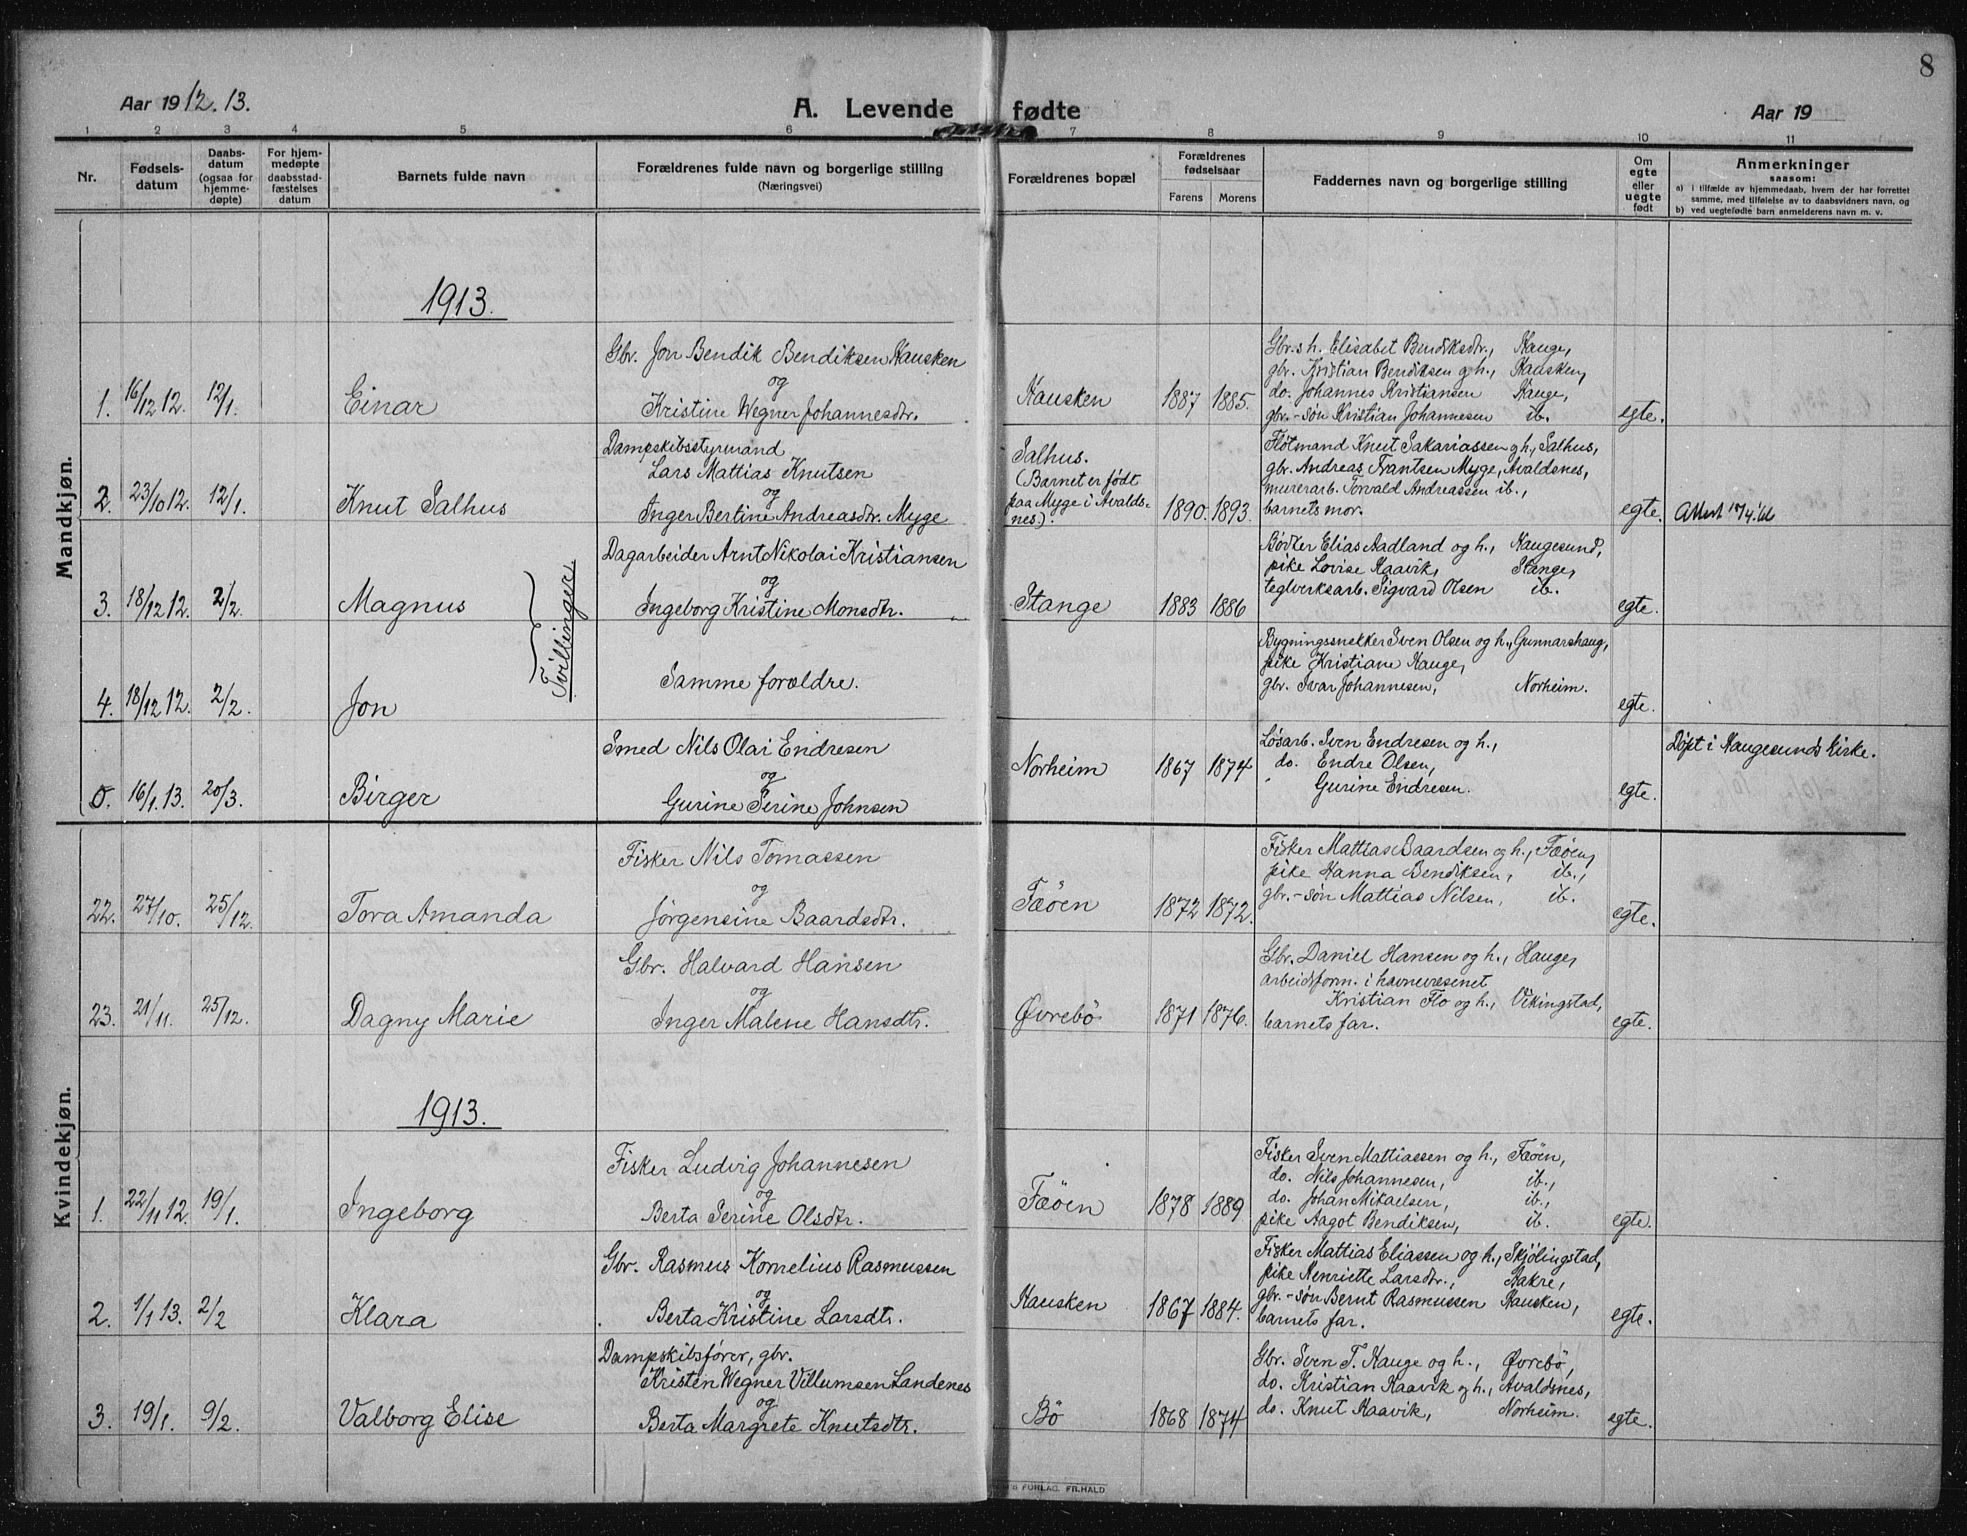 8
Aar 1912.13.
A. Levende fødte
Aar 19
1 2 3 4 5 6 7 8 9 10 11
Nr.
Fødsels-
datum
Daabs-
datum
(ogsaa for
hjemme-
døpte)
For hjem-
medøpte
daabsstad-
fæstelses
datum
Barnets fulde navn
Forældrenes fulde navn og borgerlige stilling
(Næringsvei)
Forældrenes bopæl
Forældrenes
fødselsaar
Farens Morens
Faddernes navn og borgerlige stilling
Om
egte
eller
uegte
født
Anmerkninger
saasom:
a) i tilfælde av hjemmedaab, hvem der har forrettet
samme, med tilføielse av to daabsvidners navn, og
b) ved uegtefødte barn anmelderens navn m. v.
Mandkjøn.
1913.
1. 16/12 12. 12/1. Einar
Gbr. Jon Bendik Bendiksen Hausken
og
Kristine Wegner Johannesdtr.
Hausken 1887 1885.
Gbr.s h. Elisabet Bendiksdtr., Hauge,
gbr. Kristian Bendiksen og h., Hausken,
do. Johannes Kristiansen Hauge,
gbr.-søn Kristian Johannesen ib.
egte.
2. 23/10 12. 12/1. Knut Salhus
Dampskibsstyrmand
Lars Mattias Knutsen
og
Inger Bertine Andreasdtr. Myge
Salhus.
(Barnet er født
paa Myge i Avalds-
nes.).
1890. 1893.
Flotmand Knut Sakariassen og h., Salhus,
gbr. Andreas Frantsen Myge, Avaldsnes,
murerarb. Torvald Andreassen ib.,
barnets mor.
egte. Attest
3. 18/12 12. 2/2. Magnus
Tvillinger
Dagarbeider Arnt Nikolai Kristiansen
og
Ingeborg Kristine Monsdtr.
Stange 1883 1886
Bødker Elias Aadland og h., Haugesund,
pike Lovise Haavik, Stange,
teglverksarb. Sigvard Olsen ib.
egte.
4. 18/12 12. 2/2. Jon
Samme forældre.
Bygningssnekker Sven Olsen og h., Gunnarshaug,
pike Kristiane Hauge,
gbr. Ivar Johannesen, Norheim.
egte.
0. 16/1. 13. 20/3. Birger
Smed Nils Olai Endresen
og
Gurine Serine Johnsen
Norheim 1867 1874
Løsarb. Sven Endresen og h.,
do. Endre Olsen,
Gurine Endresen.
egte.
Døpt i Haugesunds kirke.
Kvindekjøn.
22. 27/10. 25/12. Tora Amanda
Fisker Nils Tomassen
og
Jørgensine Baardsdtr.
Fæøen 1872 1872.
Fisker Mattias Baardsen og h., Fæøen,
pike Hanna Bendiksen, ib.,
gbr.-søn Mattias Nilsen, ib.
egte.
23. 21/11. 25/12. Dagny Marie
Gbr. Halvard Hansen
og
Inger Malene Hansdtr.
Øvrebø 1871 1876.
Gbr. Daniel Hansen og h., Hauge,
arbeidsform. i havnevæsenet
Kristian Flo og h., Vikingstad,
barnets far.
egte.
1913.
1. 22/11 12. 19/1. Ingeborg
Fisker Ludvig Johannesen
og
Berta Serine Olsdtr.
Fæøen 1878 1889
Fisker Sven Mattiassen og h., Fæøen,
do. Nils Johannesen, ib.,
do. Johan Mikaelsen, ib.,
pike Aagot Bendiksen, ib.
egte.
2. 1/1 13. 2/2 Klara
Gbr. Rasmus Kornelius Rasmussen
og
Berta Kristine Larsdtr.
Hausken 1867 1884.
Fisker Mattias Eliassen og h., Skjölingstad,
pike Henriette Larsdtr., Aakre,
gbr.-søn Bernt Rasmussen Hausken,
barnets far.
egte.
3. 19/1. 9/2. Valborg Elise
Dampskibsfører, gbr.
Kristen Wegner Villumsen Landenes
og
Berta Margrete Knutsdtr.
Bø 1868 1874
Gbr. Sven T. Hauge og h., Øvrebø,
do. Kristian Haavik og h., Avaldsnes,
do. Knut Haavik, Norheim.
egte.
FORLAG. FR. HALD